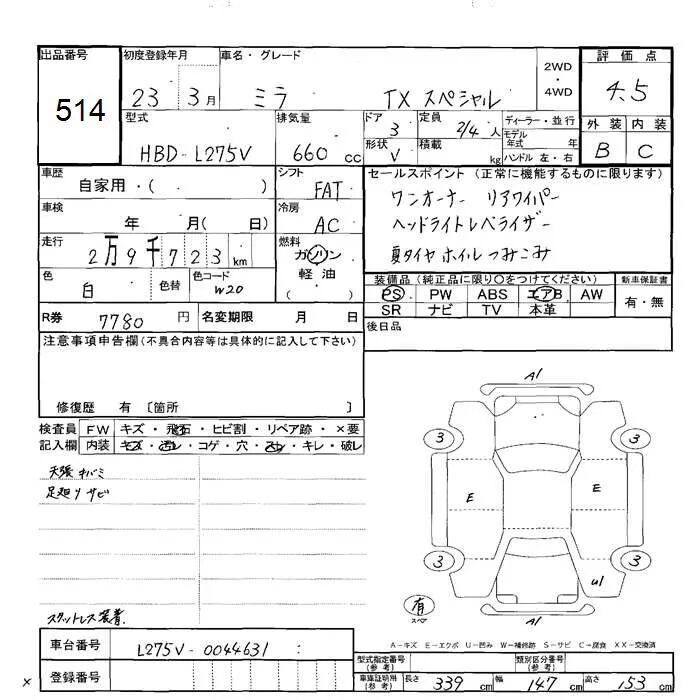 出品番号 初度登録年月 車名・グレード 2WD ・ 4WD 評価点
514 23 3月 ミラ TX スペシャル 4.5
型式 排気量 ドア 定員 ディーラー・並行 外装 内装
HBD-L275V 660cc 3 2/4人 モデル年式 年 B C
形状 V 積載 kg ハンドル 左・右
車歴 自家用・( ) シフト FAT セールスポイント (正常に機能するものに限ります)
ワンオーナー リアワイパー
車検 年 月( 日) 冷房 AC ヘッドライトレベライザー
走行 2万9千723km 燃料 ガソリン 軽油 ( ) 夏タイヤホイルつみこみ
色 白 色替 色コード W20 装備品 (純正品に限り〇をつけてください) 新車保証書
PS PW ABS エアB AW 有・無
SR ナビ TV 本革
R券 7780円 名変期限 月 日 後日品
注意事項申告欄(不具合内容等は具体的に記入して下さい)
修復歴 有 〔箇所 〕
検査員 FW キズ・飛石・ヒビ割・リペア跡・×要
記入欄 内装 キズ・汚レ・コゲ・穴・スレ・キレ・破レ
天張キバミ
足廻りサビ
スタットレス装着
A1
3 3
E E
3 3
U1
有 スペア A1
A-キズ E-エクボ U-凹み W-補修跡 S-サビ C-腐食 XX-交換済
車台番号 L275V-0044631
登録番号
型式指定番号(参考) 類別区分番号(参考)
車庫証明用(参考) 長さ 339cm 幅 147cm 高さ 153cm
×